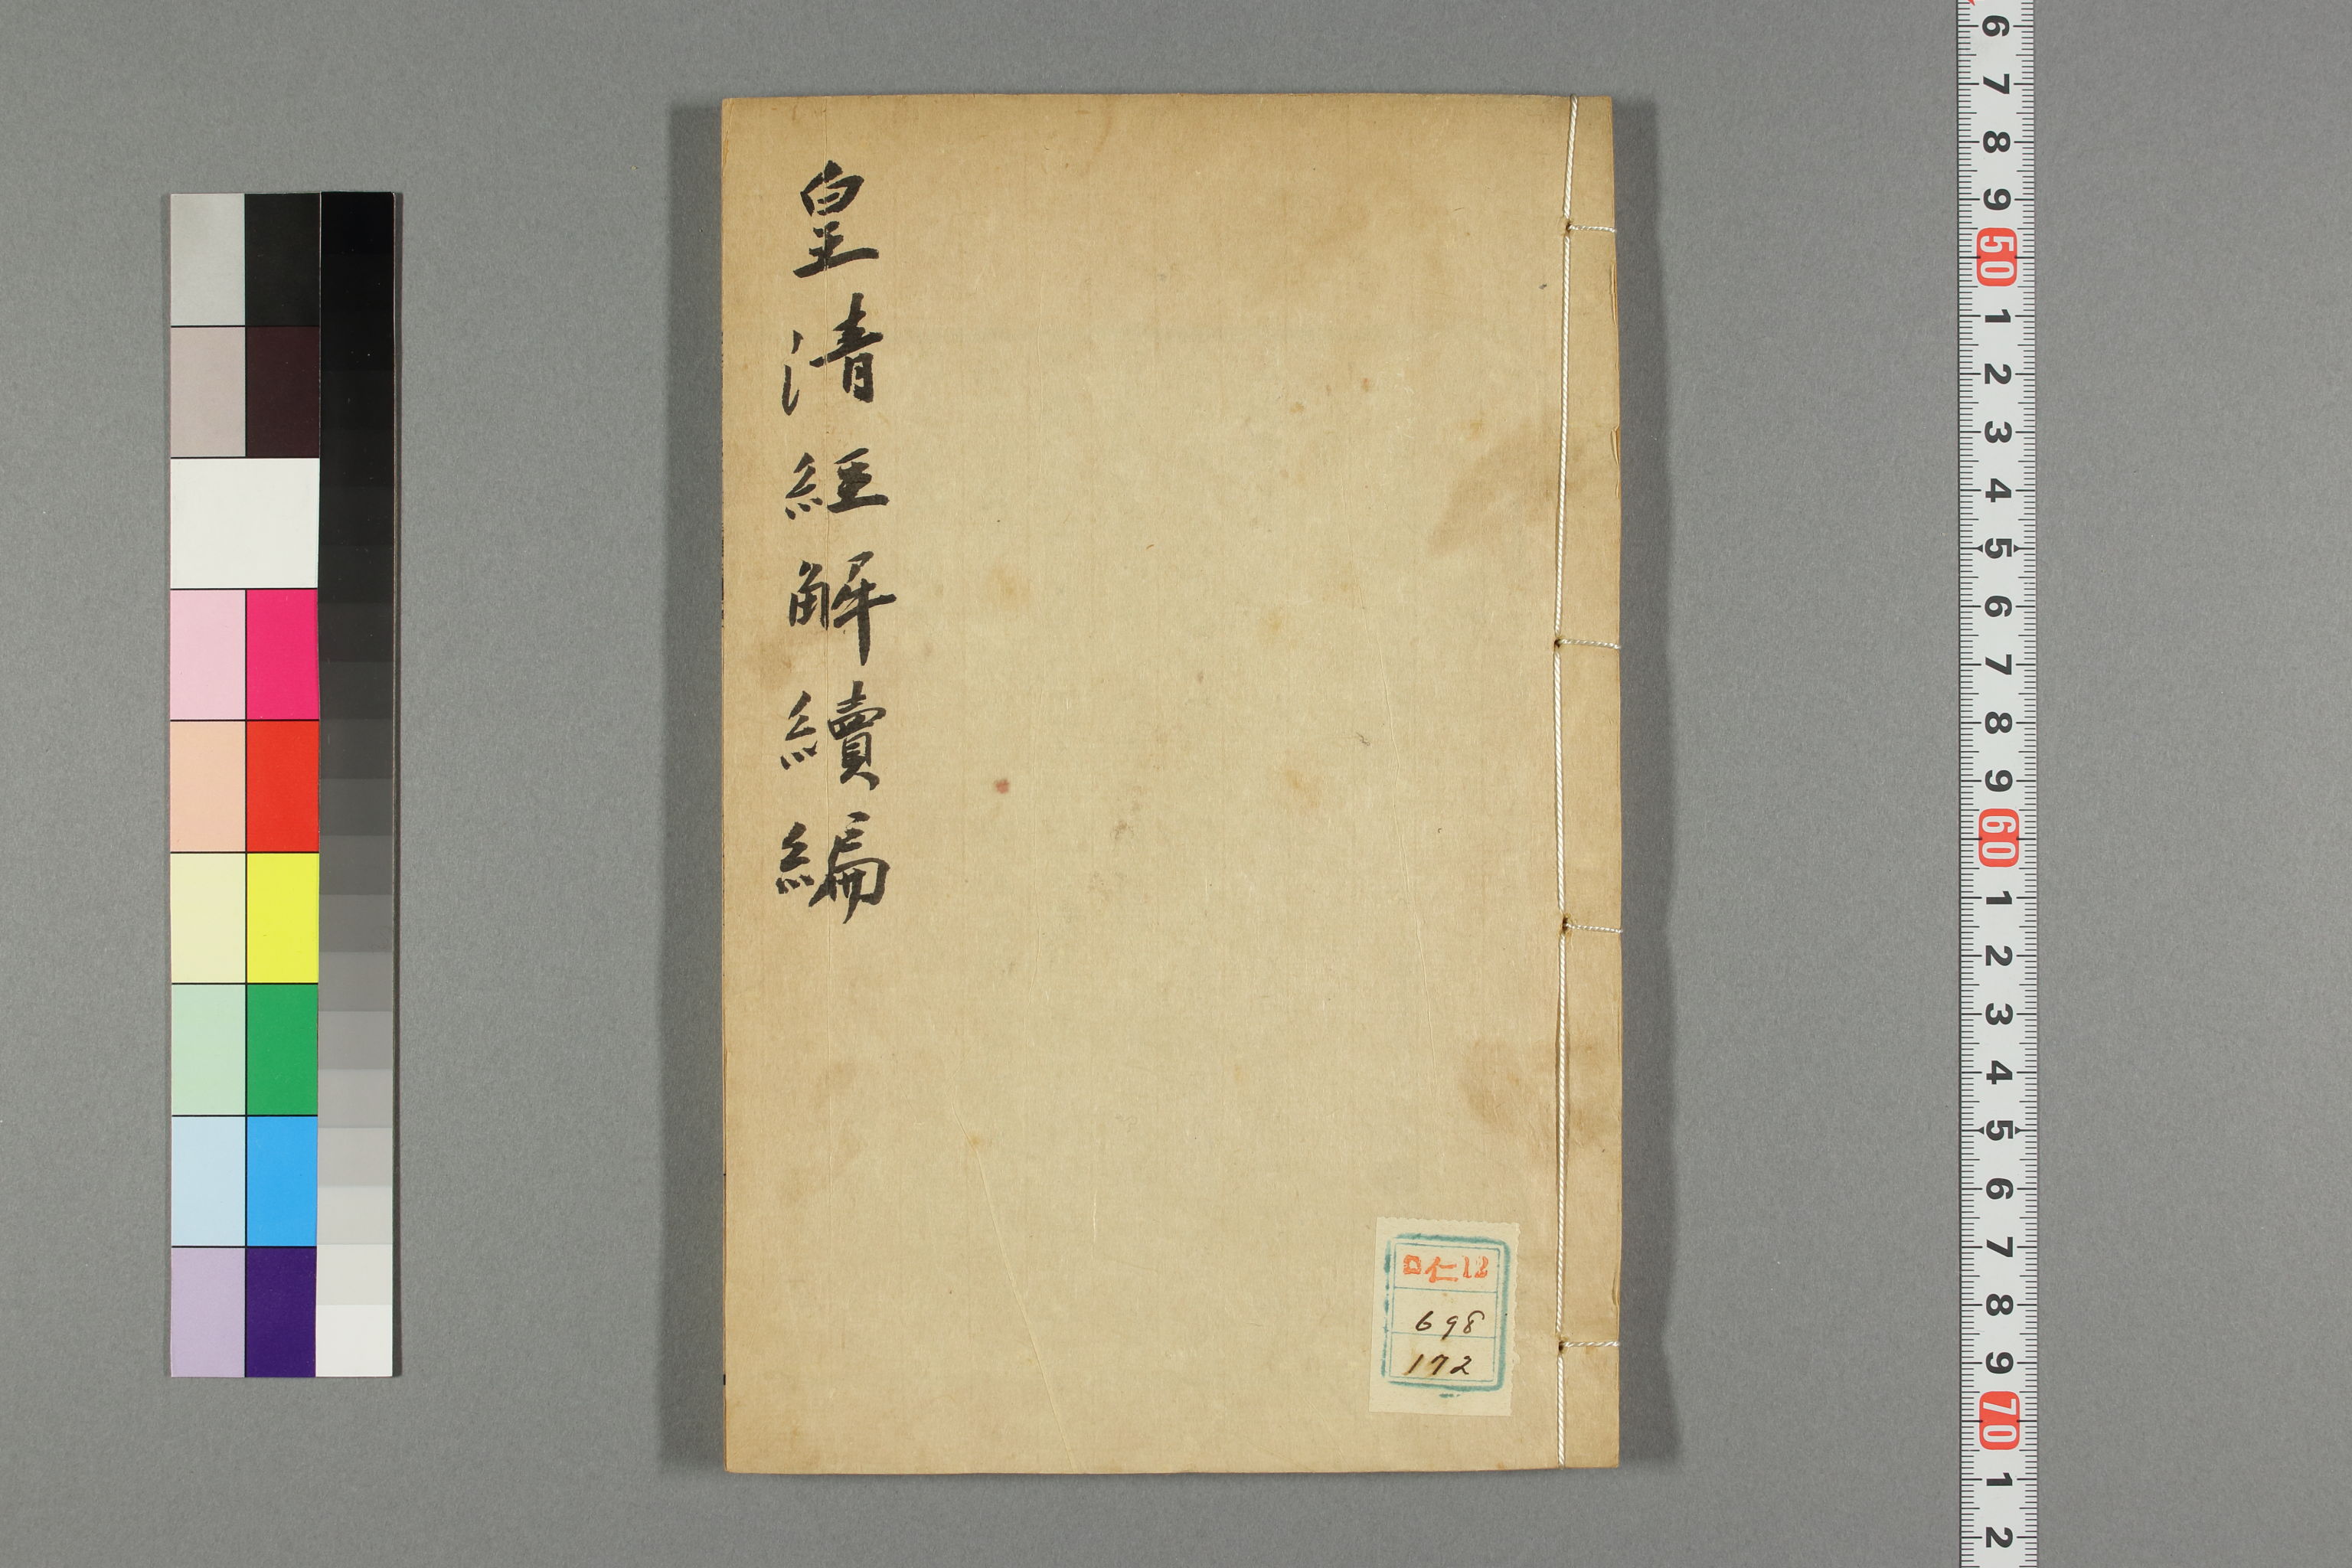 皇清經解續編
口仁12
698
172
6
7
8
9
50
1
2
3
4
5
6
7
8
9
60
1
2
3
4
5
6
7
8
9
70
1
2